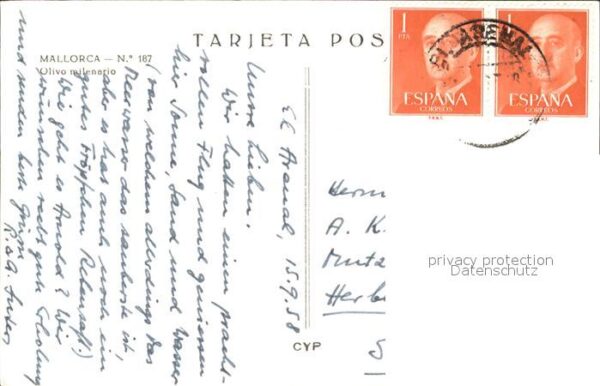 MALLORCA — N.º 187
Olivo milenario
TARJETA POS
1
PTA
ESPAÑA
CORREOS
F.N.M.T.
1
PTA
ESPAÑA
CORREOS
F.N.M.T.
EL ARENAL
El Arenal, 15.9.58
Unsre Lieben.
Wir hatten einen pracht-
vollen Flug und geniessen
hier Sonne, Sand und Wasser
(von welchem allerdings das
Meerwasser das sauberste ist,
aber es hat auch noch ein
gutes Tröpfchen Rebensaft!)
Wie geht es Arnold? Wir
wünschen recht gute Erholung
und senden beste Grüsse
R. & A.
Herrn
A. K.
Mutz
Herb
S
CYP
privacy protection
Datenschutz